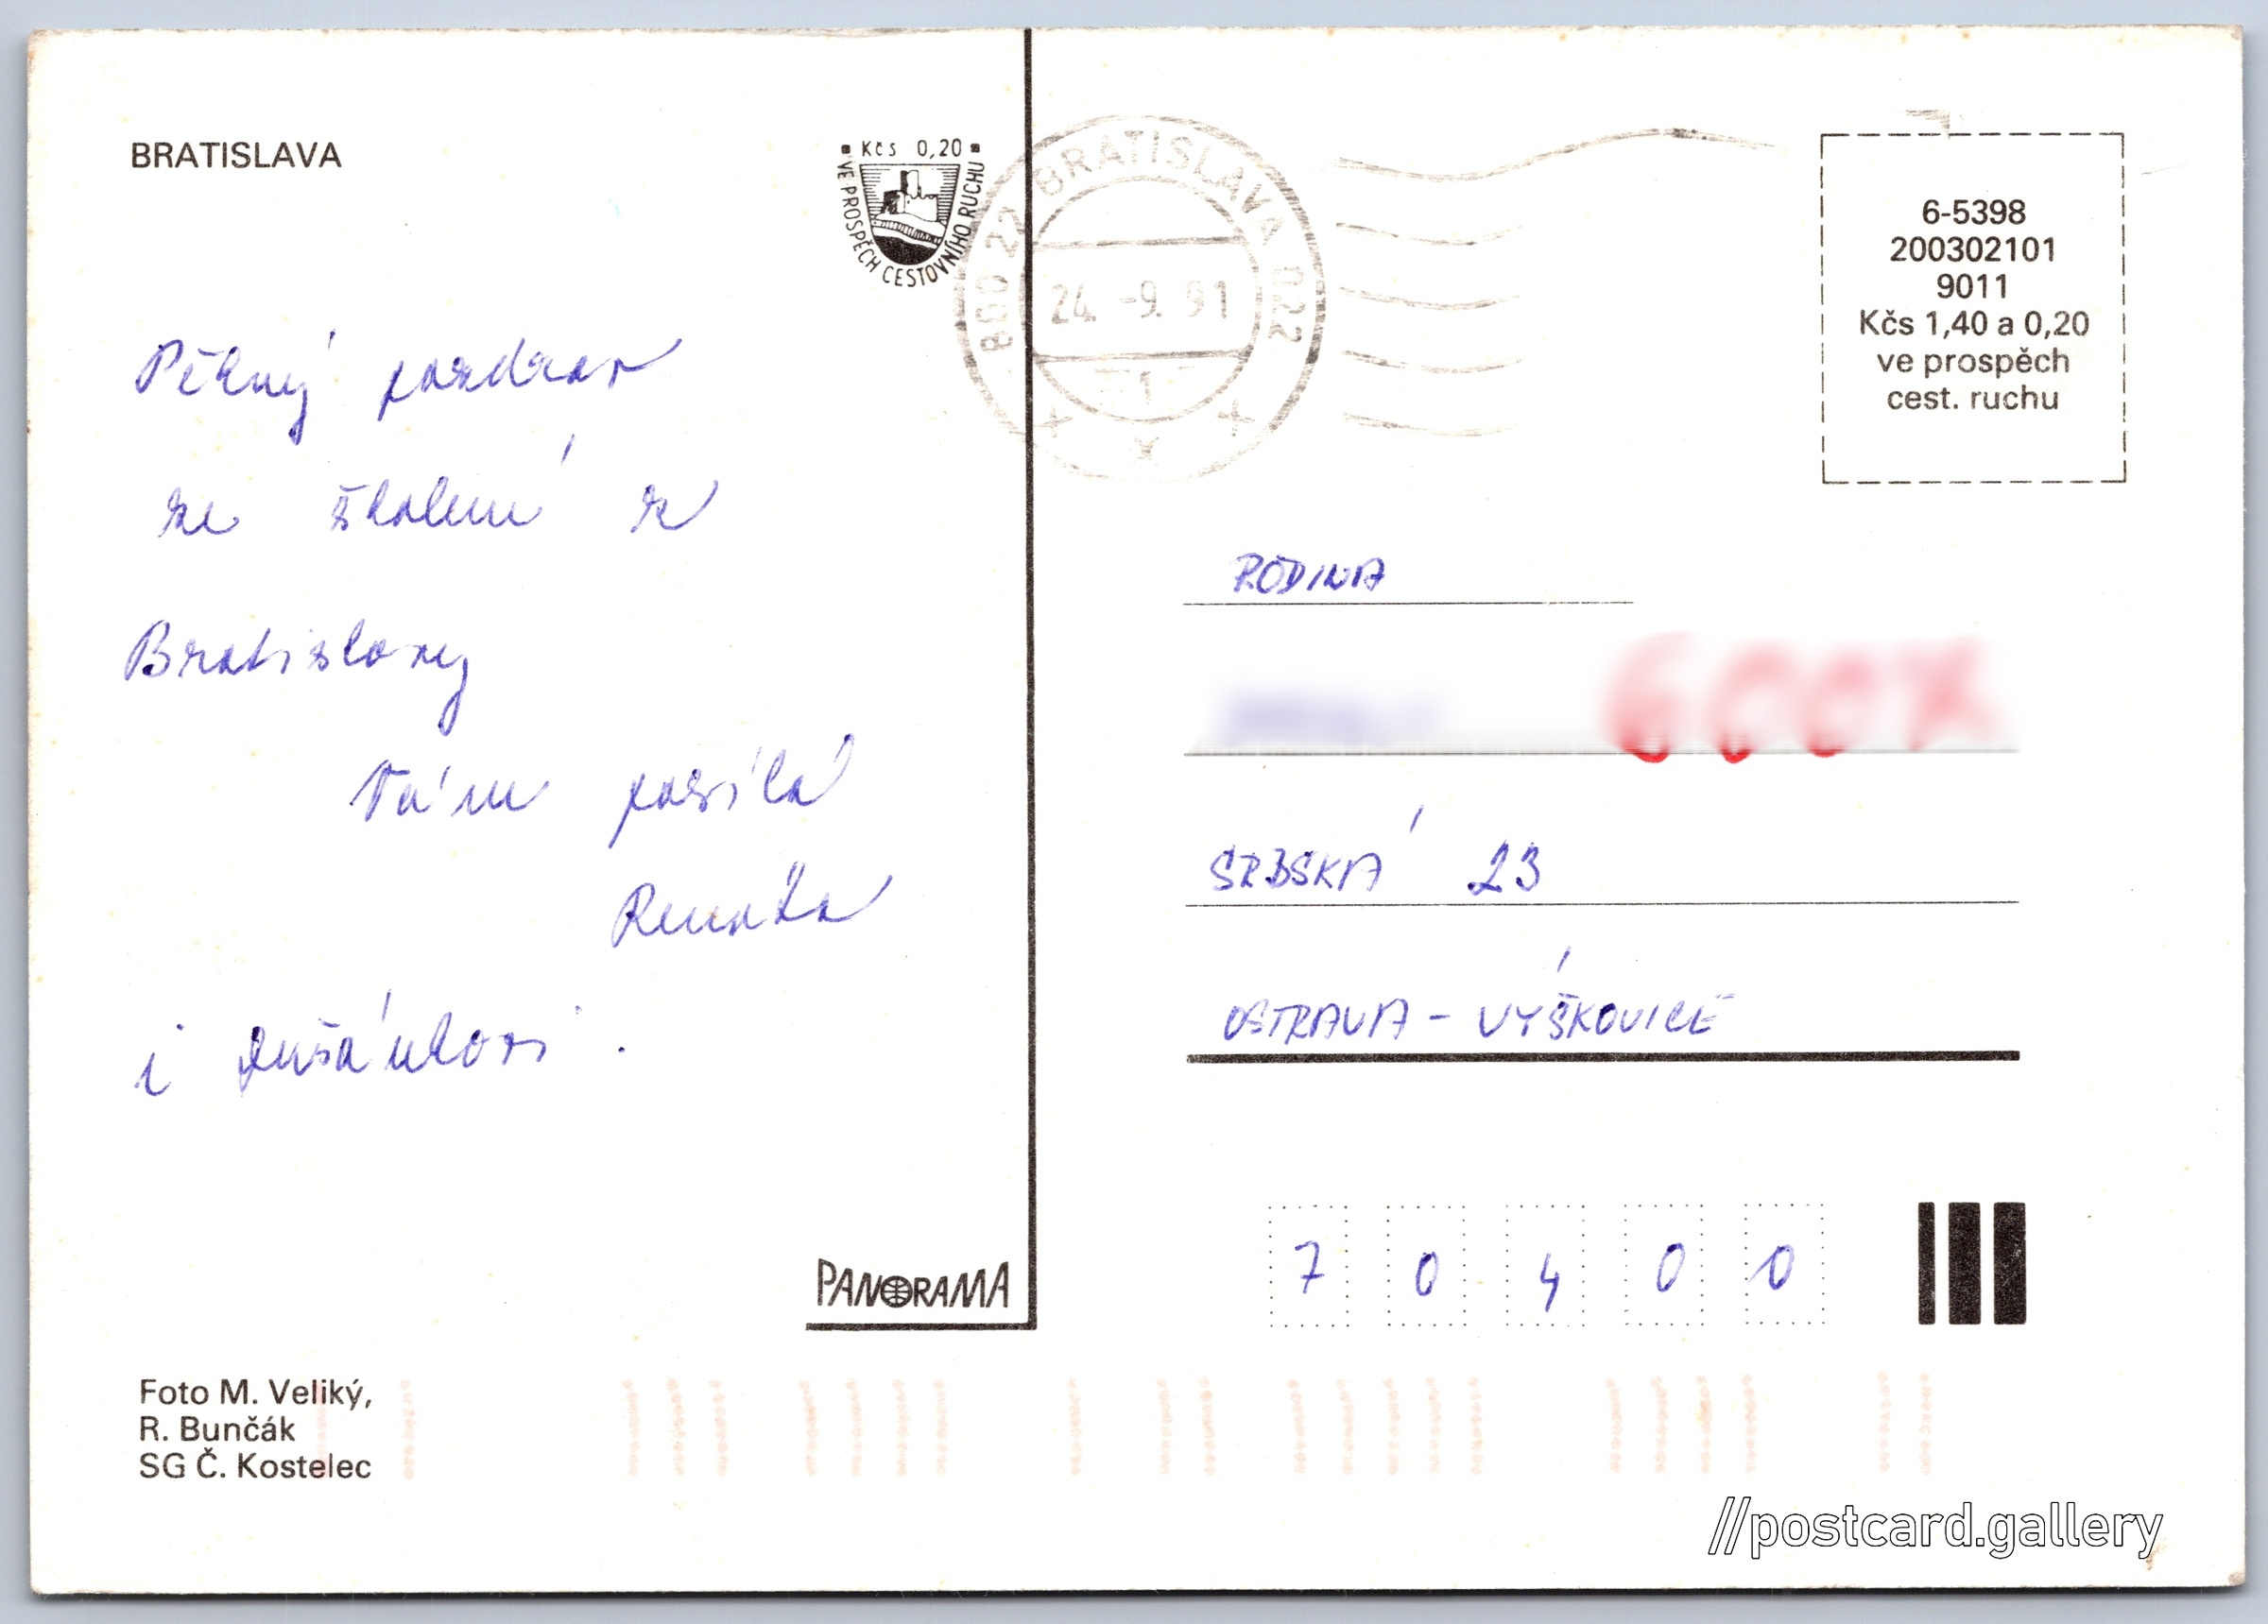 BRATISLAVA
Kčs 0,20
VE PROSPĚCH CESTOVNÍHO RUCHU
Pěkný pozdrav
ze školení z
Bratislavy
Vám posílá
Renata
i Dušánkovi.
PANORAMA
Foto M. Veliký,
R. Bunčák
SG Č. Kostelec
800 22 BRATISLAVA 022
24. -9. 91
1
6-5398
200302101
9011
Kčs 1,40 a 0,20
ve prospěch
cest. ruchu
RODINA
SRBSKÁ 23
OSTRAVA - VÝŠKOVICE
7 0 4 0 0
//postcard.gallery